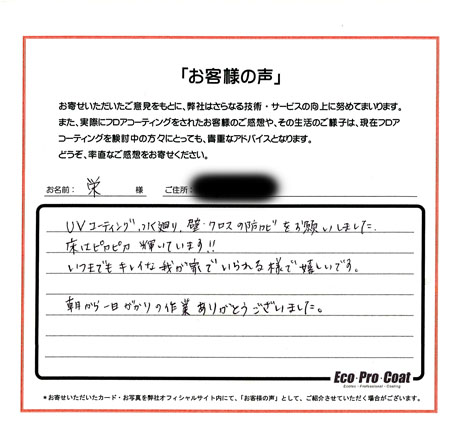 「お客様の声」
お寄せいただいたご意見をもとに、弊社はさらなる技術・サービスの向上に努めてまいります。
また、実際にフロアコーティングをされたお客様のご感想や、その生活のご様子は、現在フロア
コーティングを検討中の方々にとっても、貴重なアドバイスとなります。
どうぞ、率直なご感想をお寄せください。
お名前: 栄 様 ご住所:
UVコーティング、水廻り、壁・クロスの防カビをお願いしました。
床はピカピカ輝いています!!
いつまでもキレイな我が家でいられる様で嬉しいです。
朝から一日がかりの作業ありがとうございました。
Eco・Pro・Coat
Ecoltec・Professional・Coating
*お寄せいただいたカード・お写真を弊社オフィシャルサイト内にて、「お客様の声」として、ご紹介させていただく場合がございます。